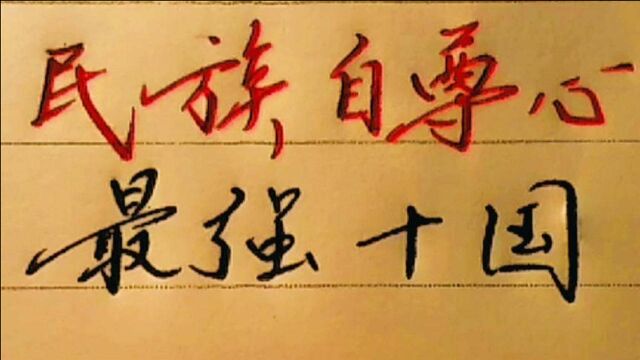 民族自尊心
最强十国